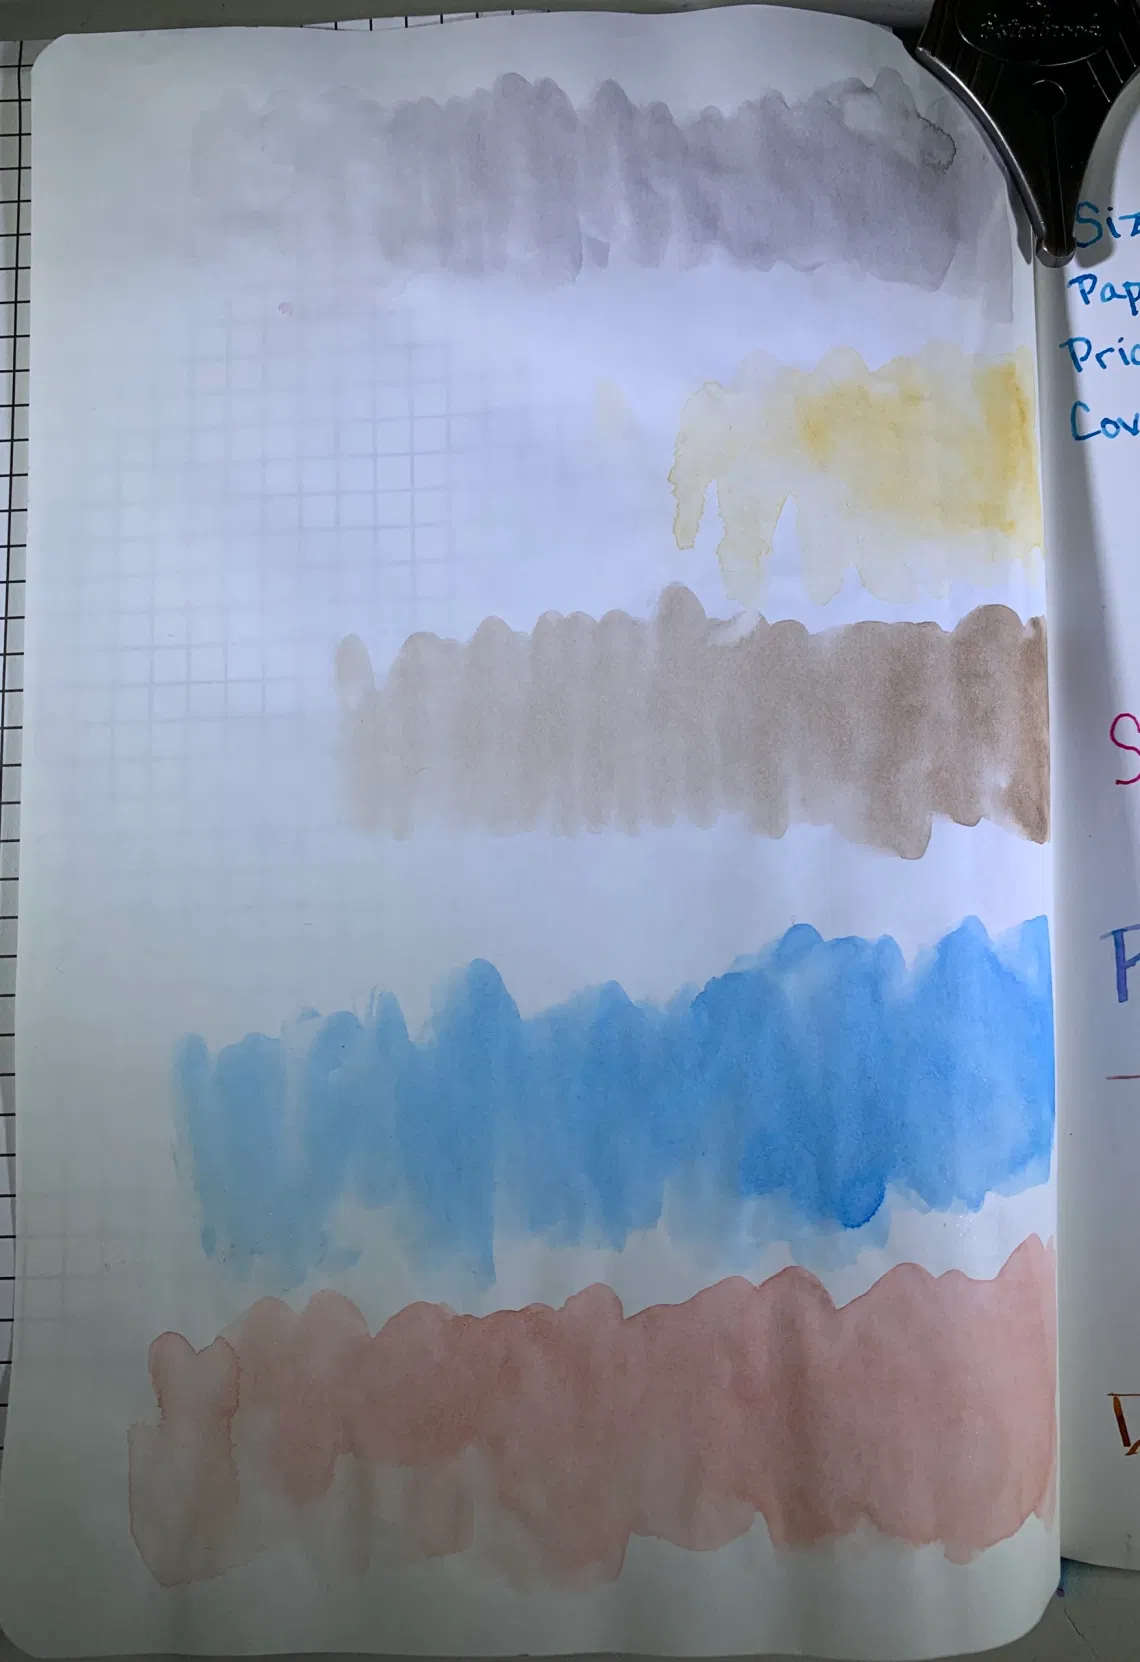 Siz
Pap
Pric
Cov
S
P
D